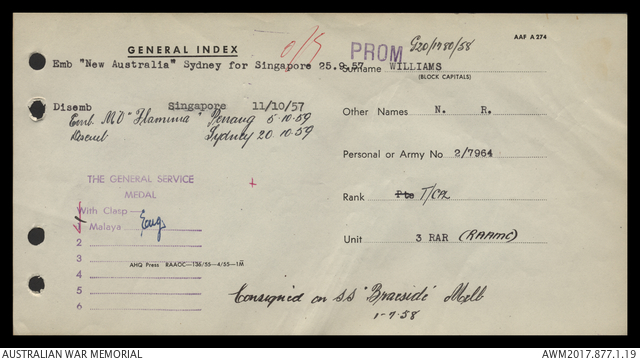 GENERAL INDEX
o/s
PROM
G20/1780/58
AAF A 274
Emb "New Australia" Sydney for Singapore 25.9.57
Surname WILLIAMS
(BLOCK CAPITALS)
Disemb Singapore 11/10/57
Emb. MV "Flaminia" Penang 5-10-59
Disemb Sydney 20.10.59
Other Names N. R.
Personal or Army No 2/7964
THE GENERAL SERVICE
MEDAL
With Clasp
1 Malaya
2
3
4
5
6
Rank Pte T/Cpl
Unit 3 RAR (RAAMC)
AHQ Press RAAOC—136/55—4/55—1M
Consigned on S.S "Braeside" Melb
1-7-58
AUSTRALIAN WAR MEMORIAL
AWM2017.877.1.19